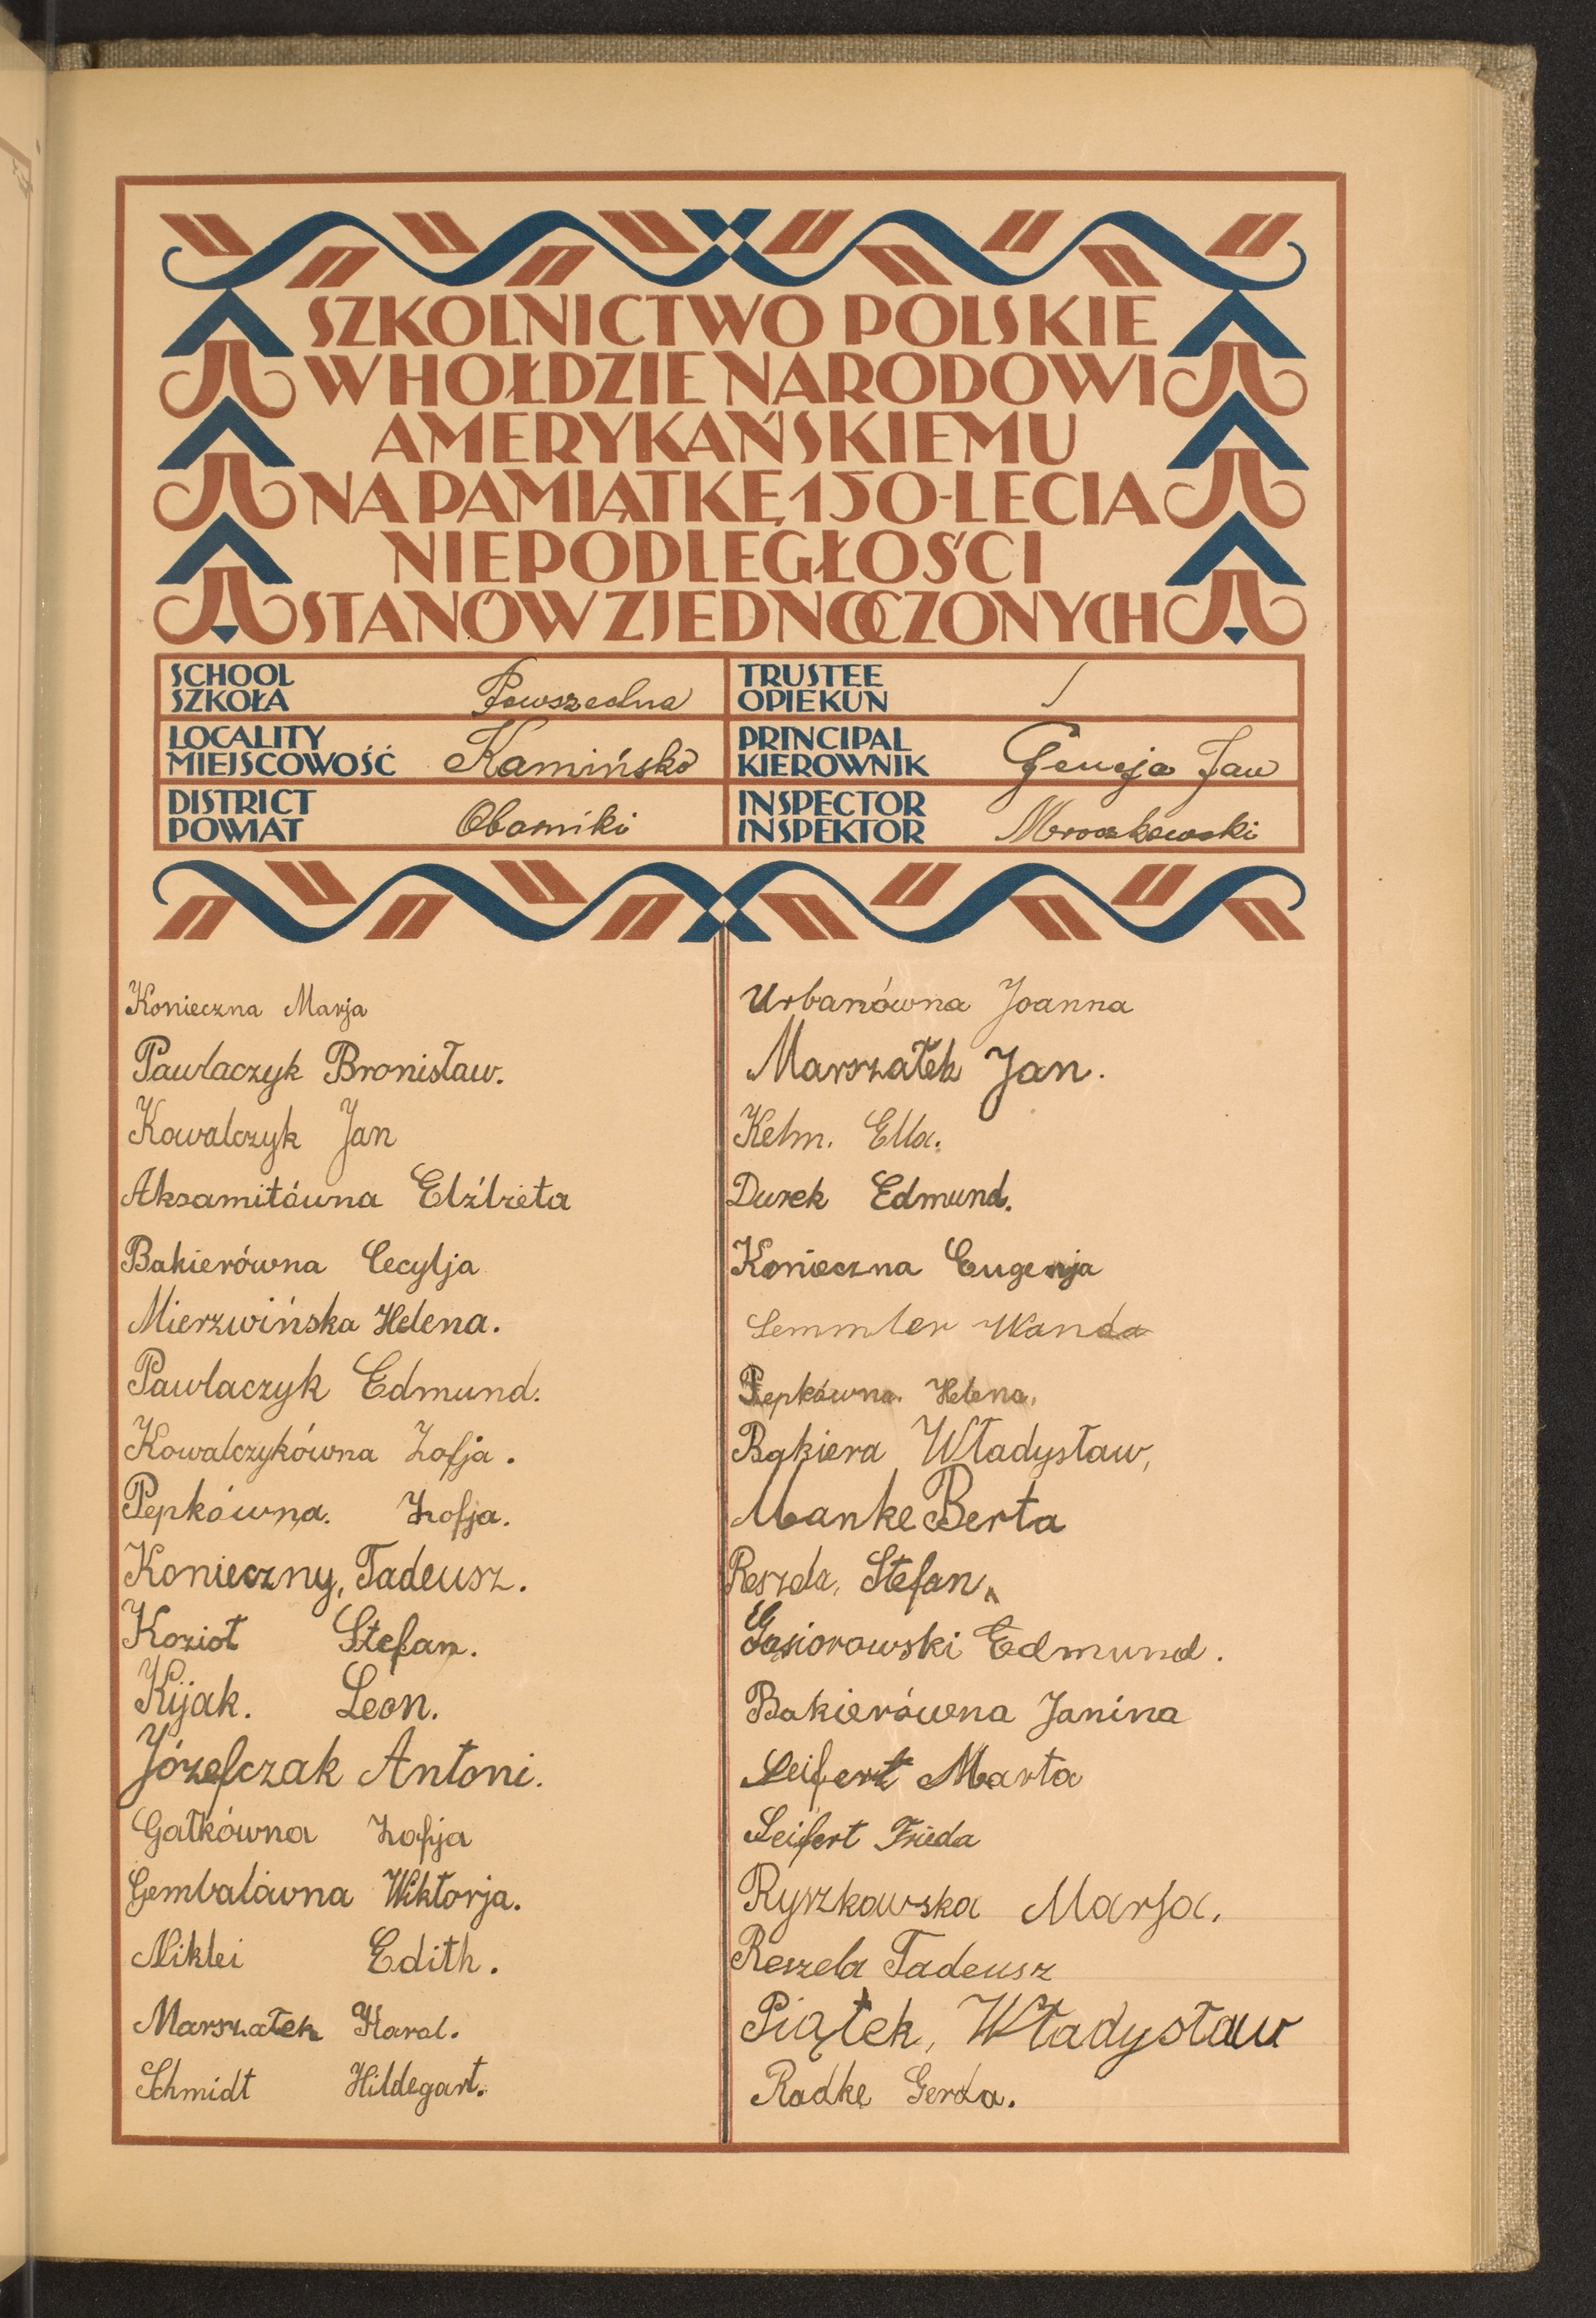 SZKOLNICTWO POLSKIE
W HOŁDZIE NARODOWI
AMERYKAŃSKIEMU
NA PAMIĄTKĘ 150-LECIA
NIEPODLEGŁOŚCI
STANÓW ZJEDNOCZONYCH
SCHOOL
SZKOŁA
Powszechna
TRUSTEE
OPIEKUN
LOCALITY
MIEJSCOWOŚĆ
Kamińsko
PRINCIPAL
KIEROWNIK
Jan
DISTRICT
POWIAT
Oborniki
INSPECTOR
INSPEKTOR
Mroczkowski
Konieczna Marja
Pawlaczyk Bronisław.
Kowalczyk Jan
Aksamitówna Elżbieta
Bakierówna Cecylja
Mierzwińska Helena.
Pawlaczyk Edmund.
Kowalczykówna Zofja.
Pepkówna. Zofja.
Konieczny, Tadeusz.
Kozioł Stefan.
Kijak. Leon.
Józefczak Antoni.
Gałkówna Zofija
Gembalówna Wiktorja.
Niklei Edith.
Marszałek Karol.
Schmidt Hildegart.
Urbanówna Joanna
Marszałek Jan.
Kelm. Ella.
Durek Edmund.
Konieczna Eugenja
Semmler Wanda
Pepkówna. Helena.
Bakiera Władysław,
Manke Berta
Stefan.
Gąsiorowski Edmund.
Bakierówna Janina
Seifert Marta
Seifert Frieda
Ryszkowska Marja.
Reszela Tadeusz
Piątek, Władysław
Radke Gerda.